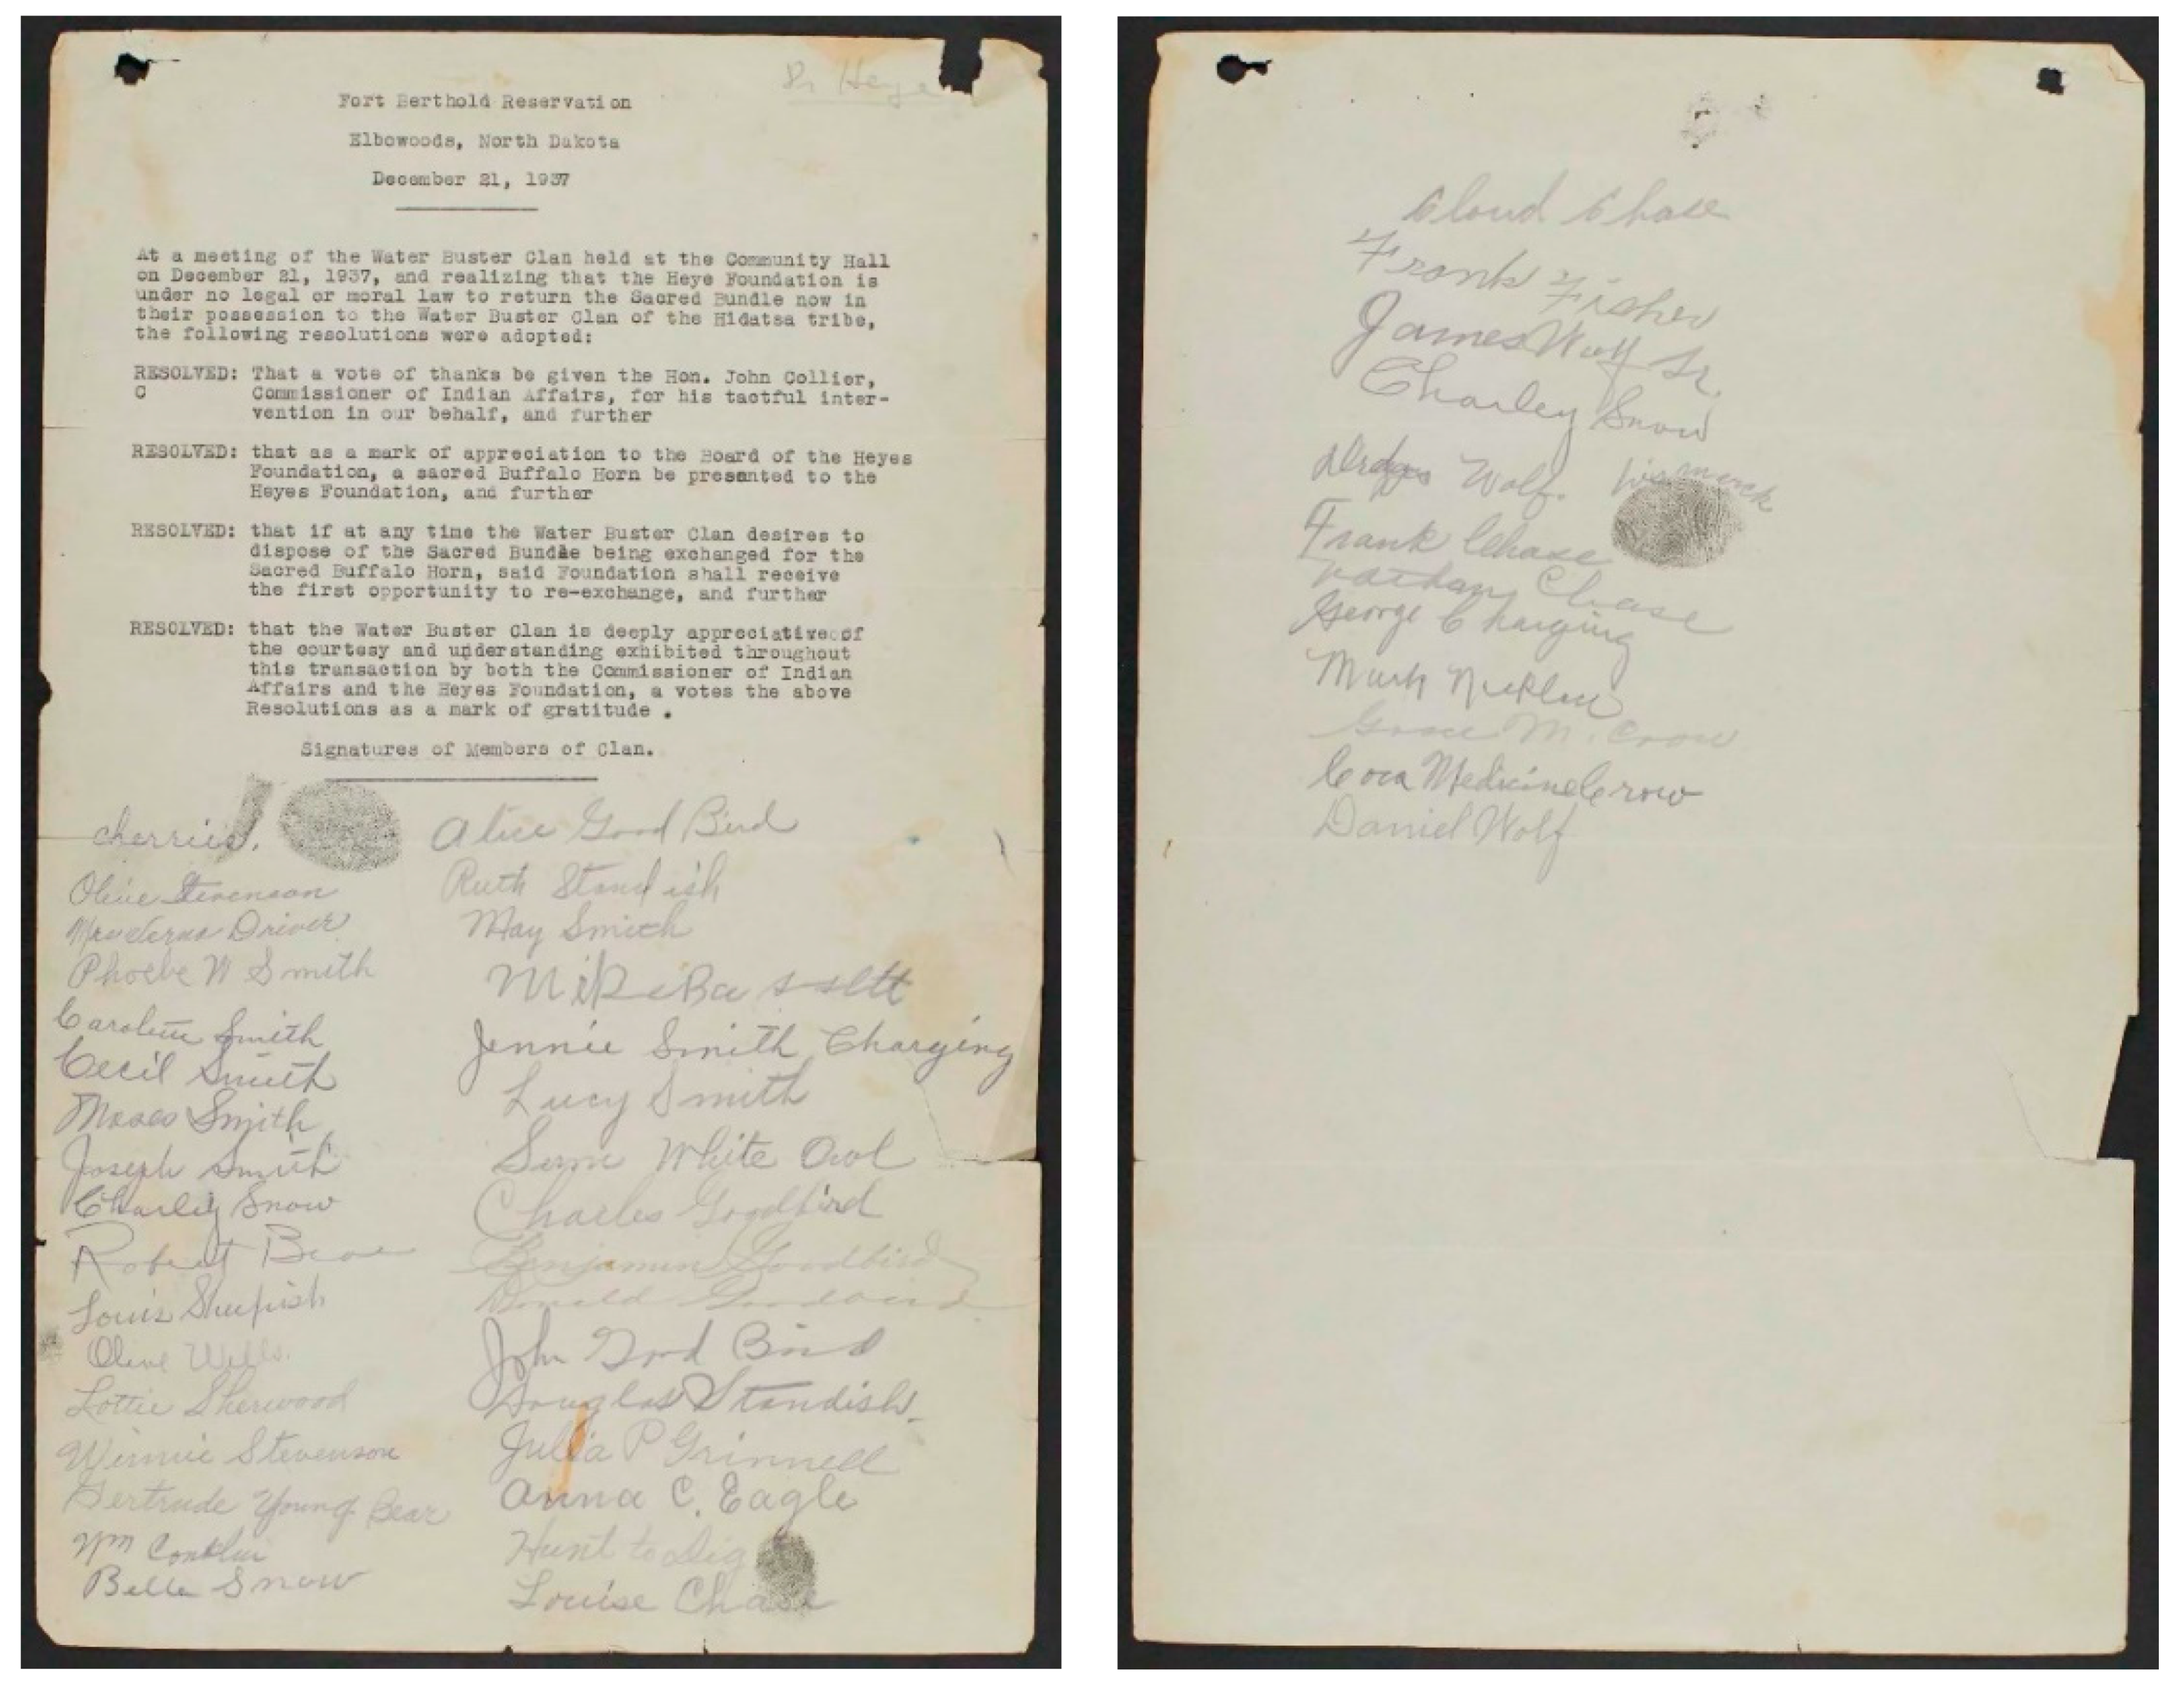 Heye
Fort Berthold Reservation
Elbowoods, North Dakota
December 21, 1937
At a meeting of the Water Buster Clan held at the Community Hall
on December 21, 1937, and realizing that the Heye Foundation is
under no legal or moral law to return the Sacred Bundle now in
their possession to the Water Buster Clan of the Hidatsa tribe,
the following resolutions were adopted:
RESOLVED: That a vote of thanks be given the Hon. John Collier,
C Commissioner of Indian Affairs, for his tactful inter-
vention in our behalf, and further
RESOLVED: that as a mark of appreciation to the Board of the Heyes
Foundation, a sacred Buffalo Horn be presented to the
Heyes Foundation, and further
RESOLVED: that if at any time the Water Buster Clan desires to
dispose of the Sacred Bundle being exchanged for the
Sacred Buffalo Horn, said Foundation shall receive
the first opportunity to re-exchange, and further
RESOLVED: that the Water Buster Clan is deeply appreciative of
the courtesy and understanding exhibited throughout
this transaction by both the Commissioner of Indian
Affairs and the Heyes Foundation, a votes the above
Resolutions as a mark of gratitude .
Signatures of Members of Clan.
cherries.
Olive Stevenson
Driver
Phoebe W Smith
Caroline Smith
Cecil Smith
Moses Smith
Joseph Smith
Charley Snow
Robert Bear
Louis
Olive Wells.
Lottie Sherwood
Winnie Stevenson
Gertrude Young Bear
Wm Conklin
Bella Snow
Alice Good Bird
Ruth Standish
May Smith
Mike Bassett
Jennie Smith Charging
Lucy Smith
White Owl
Charles Goodbird
Benjamin Goodbird
Donald Goodbird
John Good Bird
Douglas Standish.
Julia P Grinnell
Anna C. Eagle
Hunt to Dig
Louise Chase
Cloud Chase
Frank Fisher
James Wolf Sr.
Charley Snow
Wolf.
Frank Chase
Nathan Chase
George Charging
Mark
M. Crow
Cora Medicine Crow
Daniel Wolf